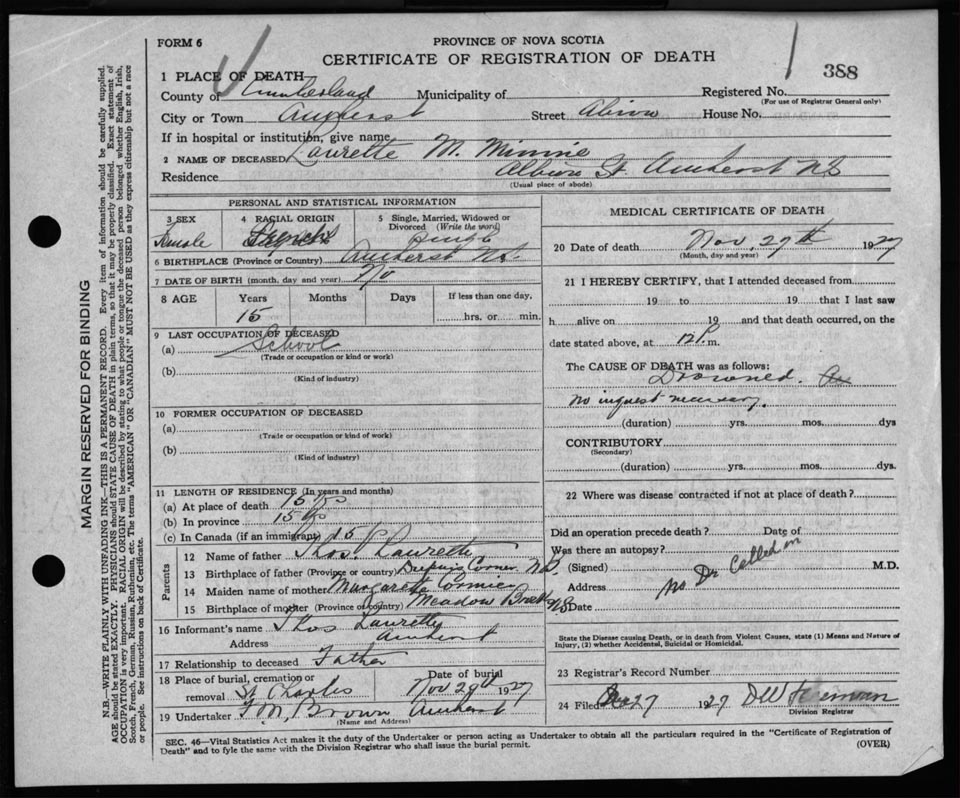 FORM 6
PROVINCE OF NOVA SCOTIA
CERTIFICATE OF REGISTRATION OF DEATH
388
1 PLACE OF DEATH
County of Cumberland Municipality of Registered No.
(For use of Registrar General only)
City or Town Amherst Street Albion House No.
If in hospital or institution, give name
2 NAME OF DECEASED Laurette M. Minnie
Residence Albion St. Amherst NS
(Usual place of abode)
PERSONAL AND STATISTICAL INFORMATION
3 SEX 4 RACIAL ORIGIN 5 Single, Married, Widowed or Divorced (Write the word)
Female French Single
6 BIRTHPLACE (Province or Country) Amherst NS.
7 DATE OF BIRTH (month, day and year)
8 AGE Years Months Days If less than one day,
15 hrs. or min.
9 LAST OCCUPATION OF DECEASED
(a) School
(Trade or occupation or kind or work)
(b)
(Kind of industry)
10 FORMER OCCUPATION OF DECEASED
(a)
(Trade or occupation or kind of work)
(b)
(Kind of industry)
11 LENGTH OF RESIDENCE (In years and months)
(a) At place of death 15 yrs
(b) In province 15 yrs
(c) In Canada (if an immigrant) 15
Parents
12 Name of father Thos. Laurette
13 Birthplace of father (Province or country) Corner NS.
14 Maiden name of mother Margarette Cormier
15 Birthplace of mother (Province or country) Meadow NS
16 Informant's name Thos Laurette
Address Amherst
17 Relationship to deceased Father
18 Place of burial, cremation or removal St Charles Date of burial Nov 29th 1927
19 Undertaker F.M. Brown Amherst
(Name and Address)
MEDICAL CERTIFICATE OF DEATH
20 Date of death Nov. 27th 1927
(Month, day and year)
21 I HEREBY CERTIFY, that I attended deceased from
19 to 19 that I last saw
h alive on 19 and that death occurred, on the
date stated above, at 12 P. m.
The CAUSE OF DEATH was as follows:
Drowned.
no inquest necessary.
(duration) yrs. mos. dys
CONTRIBUTORY
(Secondary)
(duration) yrs. mos. dys.
22 Where was disease contracted if not at place of death?
Did an operation precede death? Date of
Was there an autopsy?
(Signed) M.D.
Address No Dr Called in
Date
State the Disease causing Death, or in death from Violent Causes, state (1) Means and Nature of
Injury, (2) whether Accidental, Suicidal or Homicidal.
23 Registrar's Record Number
24 Filed 27 1927 DW
Division Registrar
SEC. 46—Vital Statistics Act makes it the duty of the Undertaker or person acting as Undertaker to obtain all the particulars required in the "Certificate of Registration of
Death" and to fyle the same with the Division Registrar who shall issue the burial permit.
(OVER)
MARGIN RESERVED FOR BINDING
N.B.—WRITE PLAINLY WITH UNFADING INK—THIS IS A PERMANENT RECORD. Every item of information should be carefully supplied.
AGE should be stated EXACTLY. PHYSICIANS should STATE CAUSE OF DEATH in plain terms, so that it may be properly classified. Exact statement of
OCCUPATION is very important. RACIAL ORIGIN will be described by stating to what people or tongue the deceased person belonged whether English, Irish,
Scotch, French, German, Russian, Ruthenian, etc. The terms "AMERICAN" OR "CANADIAN" MUST NOT BE USED as they express citizenship but not a race
or people. See instructions on back of Certificate.